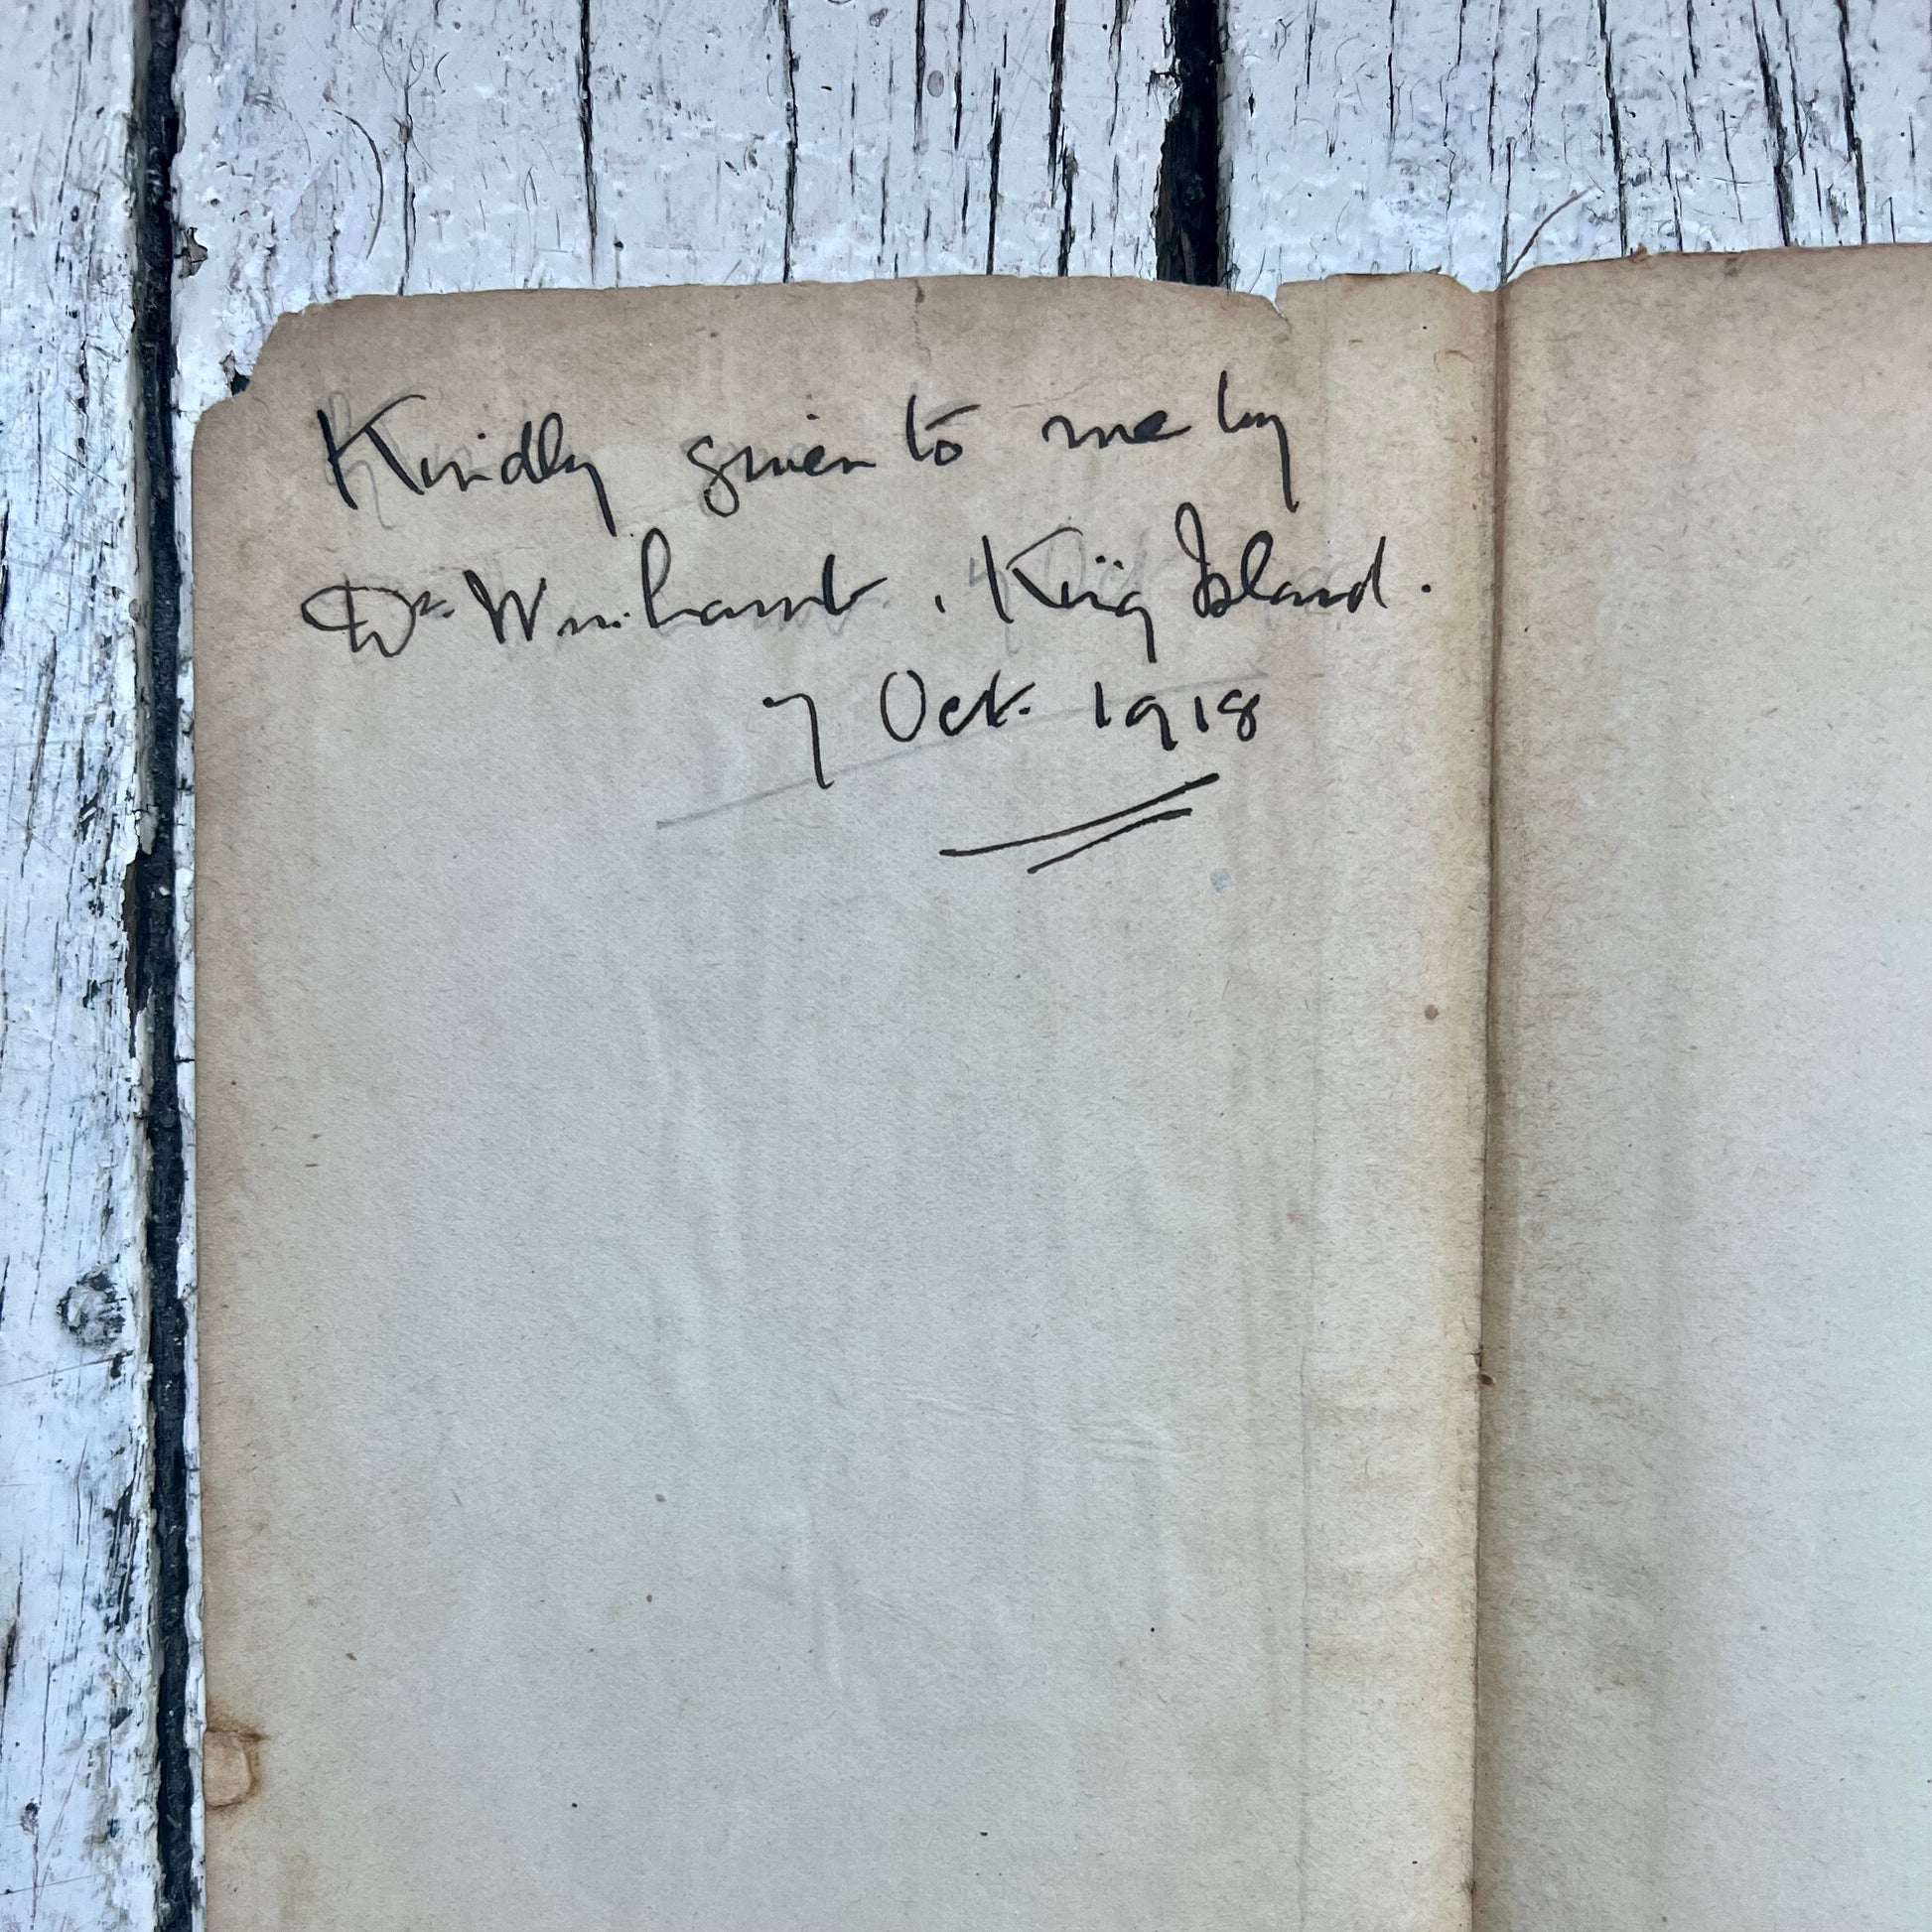 Kindly given to me by
Dr. , King Island.
7 Oct. 1918